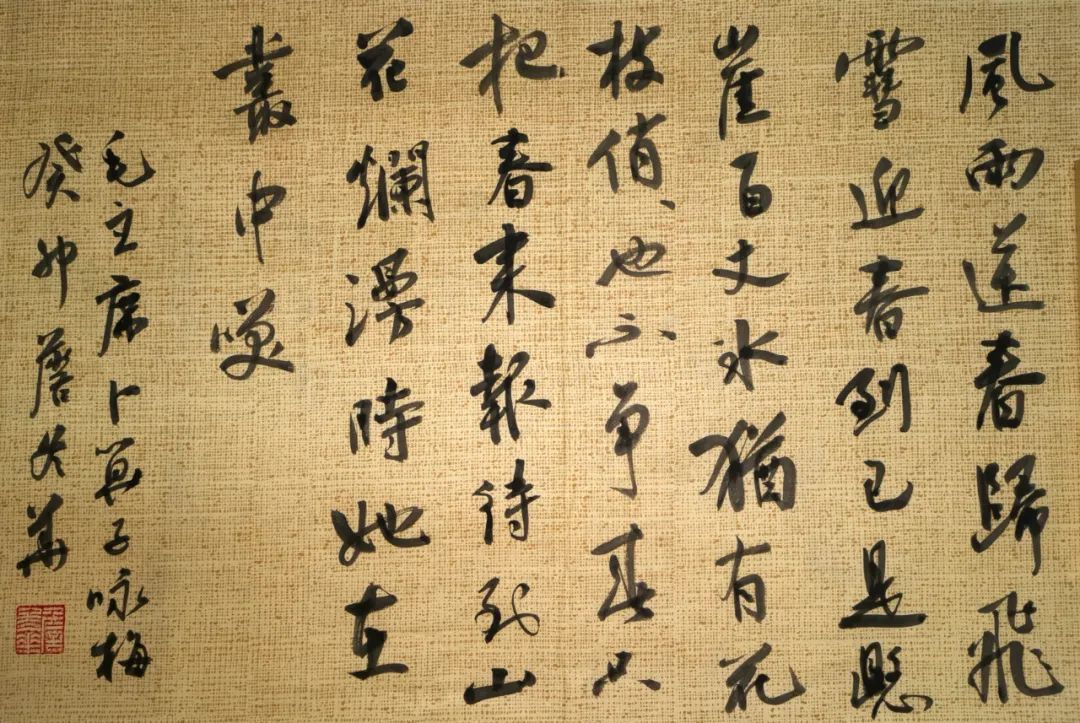 風雨送春歸飛
雪迎春到已是懸
崖百丈冰猶有花
枝俏、也不争春只
把春来報待到山
花爛漫時她在
叢中咲
毛主席卜算子咏梅
癸卯詹冬華